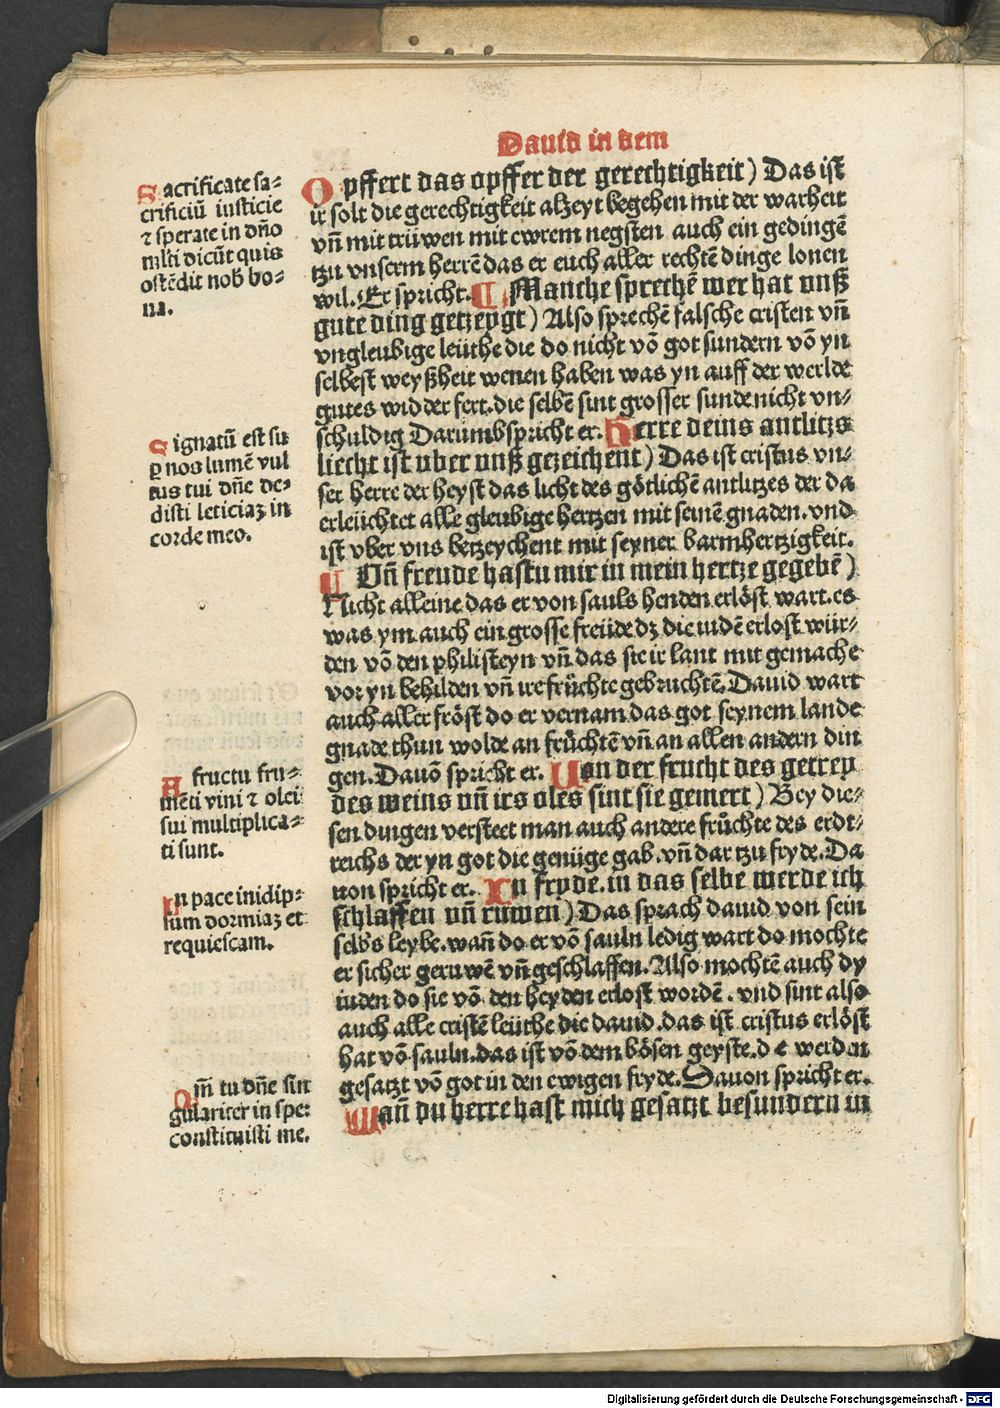 Dauid in dem
Sacrificate sa⸗
crificiū iusticie
⁊ sperate in dño
mlti dicūt quis
ostēdit nob̄ bo⸗
na.
Signatū est su
ꝑ nos lumē vul
tus tui dñe de⸗
disti leticiaꝫ in
corde meo.
A fructu fru⸗
mēti vini ⁊ olei
sui multiplica⸗
ti sunt.
In pace inidip⸗
sum dormiaꝫ et
requiescam.
Qm̄ tu dñe sin
gulariter in spe:
constituisti me.
Opffert das opffer der gerechtigkeit) Das ist
ir solt die gerechtigkeit alzeyt begehen mit der warheit
vñ mit trüwen mit ewrem negsten auch ein gedingē
tzu vnserm herrē das er euch aller rechtē dinge lonen
wil. Er spricht. Manche sprechē wer hat vnß
gute ding getzeygt) Also sprechē falsche cristen vñ
vngleubige leüthe die do nicht vō got sundern vō yn
selbest weyßheit wenen haben was yn auff der werlde
gutes widder fert. die selbē sint grosser sunde nicht vn⸗
schuldig Darumb spricht er. Herre deins antlitzs
liecht ist uber unß gezeichent) Das ist cristus vn⸗
ser herre der heyst das licht des götlichē antlitzes der da
erleüchtet alle gleubige hertzen mit seinē gnaden. vnd
ist vber vns betzeychent mit seyner barmhertzigkeit.
Vñ freude hastu mir in mein hertze gegebē)
Nicht alleine das er von sauls henden erlöst wart. es
was ym auch ein grosse freüde dz die iudē erlost wür⸗
den vō den philisteyn vñ das sie ir lant mit gemache
vor yn behilden vñ ire früchte gebruchtē. Dauid wart
auch aller fröst do er vernam das got seynem lande
gnade thun wolde an früchtē vñ an allen andern din
gen. Davō spricht er. Von der frucht des getrey
des weins vñ irs oles sint sie gemert) Bey die⸗
sen dingen versteet man auch andere früchte des erdt⸗
reichs der yn got die genüge gab. vñ dar tzu fryde. Da
uon spricht er. In fryde. in das selbe werde ich
schlaffen vñ ruwen) Das sprach dauid von sein
selbs leybe. wañ do er vō sauln ledig wart do mochte
er sicher geruwē vñ geschlaffen. Also mochtē auch dy
iuden do sie vō den heyden erlost wordē. vnd sint also
auch alle cristē leüthe die dauid. das ist cristus erlöst
hat vō sauln. das ist vō dem bösen geyste. d e werden
gesatzt vō got in den ewigen fryde. Dauon spricht er.
Wañ du herre hast mich gesatzt besundern in
Digitalisierung gefördert durch die Deutsche Forschungsgemeinschaft - DFG